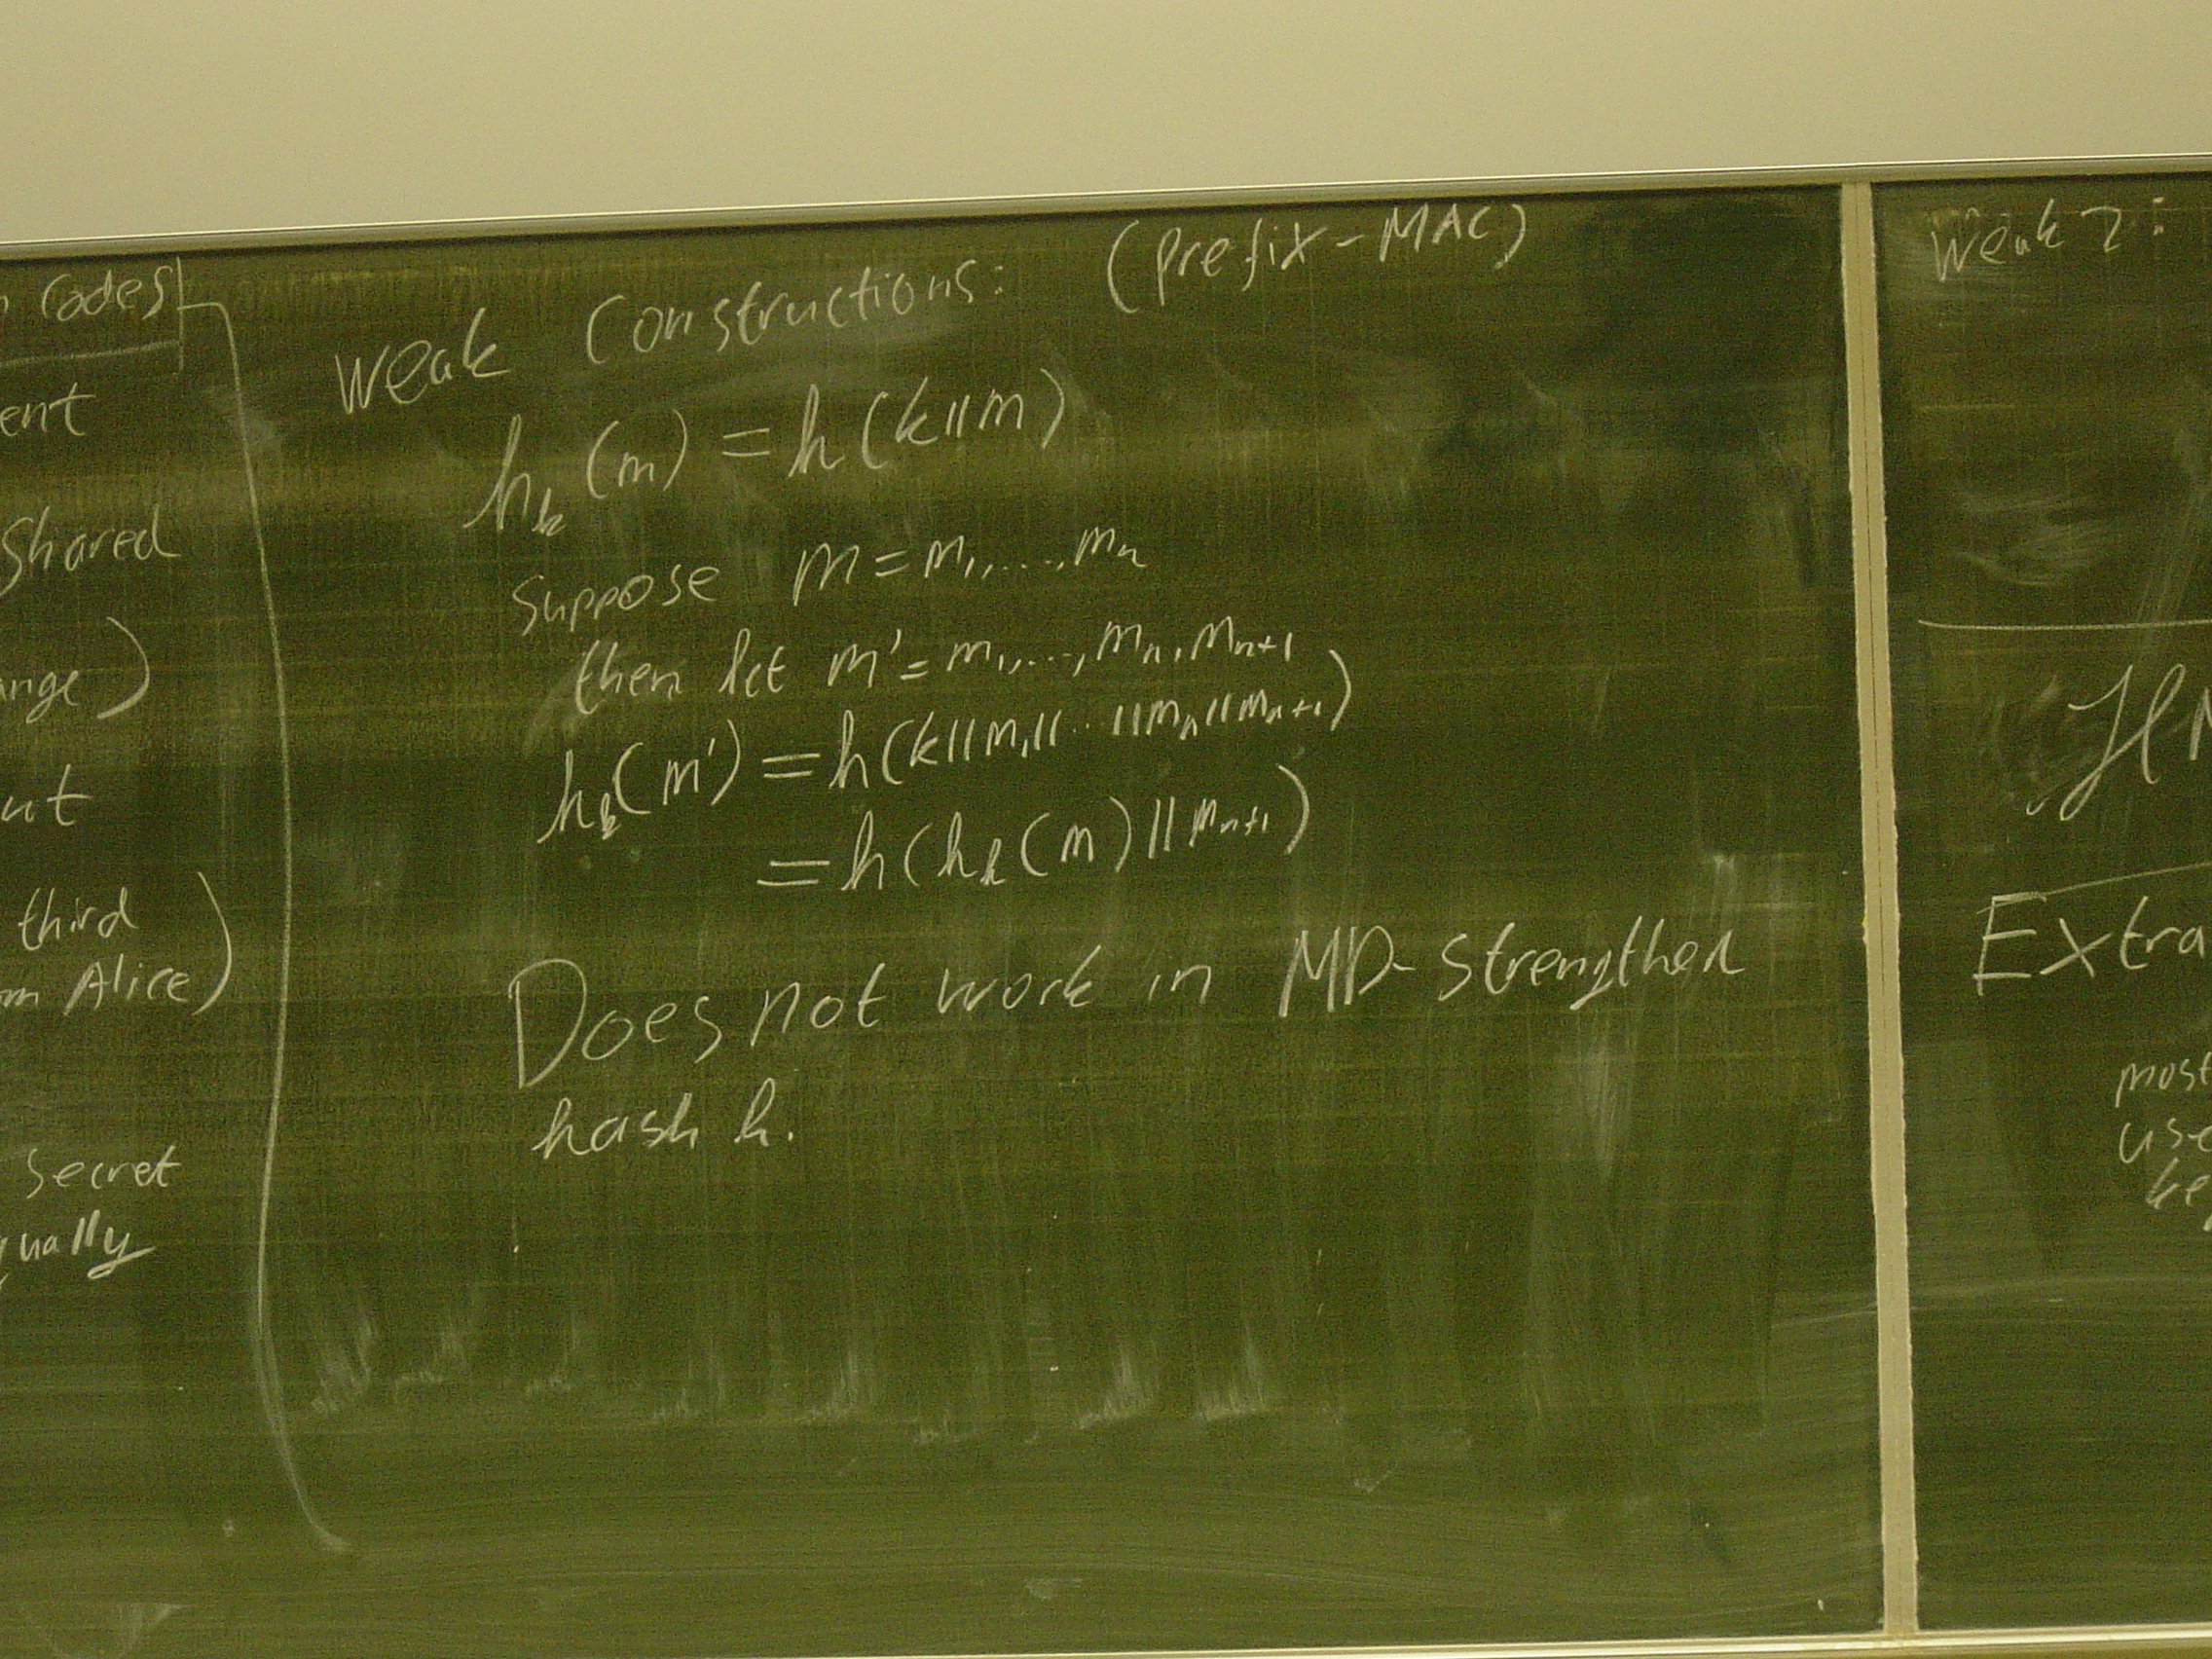 Codes
ent
Shared
ange)
ut
third
om Alice)
secret
qually
Weak Constructions: (prefix-MAC)
h_k(m) = h(k||m)
Suppose m = m_1,...,m_n
then let m' = m_1,...,m_n,m_{n+1}
h_k(m') = h(k||m_1||...||m_n||m_{n+1})
= h(h_k(m)||m_{n+1})
Does not work in MD-strengthen
hash h.
Weak 2:
Extra
most
use